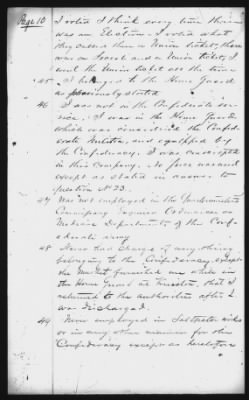 Page 10
I voted I think every time there
was an Election. I voted what
they called the Union ticket, there
was a Secesh and a Union ticket, I
voted the Union ticket all the time
45 I belonged to the Home Guard
as previously stated
46 I was not in the Confederate ser-
vice. I was in the Home Guard
which was considered the Confed-
erate Militia, and equipped by
the Confederacy. I was conscripted
in this Company. No force was used
except as stated in answer to
question No 23.
47 Was not employed in the Quartermasters
Commissary Ordnance or
Medicine Department of the Conf-
ederate army
48 Never had charge of any thing
belonging to the Confederacy, except
the Musket furnished me while in
the Home Guard at Kinston, that I
returned to the authorities after I
was discharged.
49 Never employed in Saltpeter works
or in any other manner for the
Confederacy except as heretofore